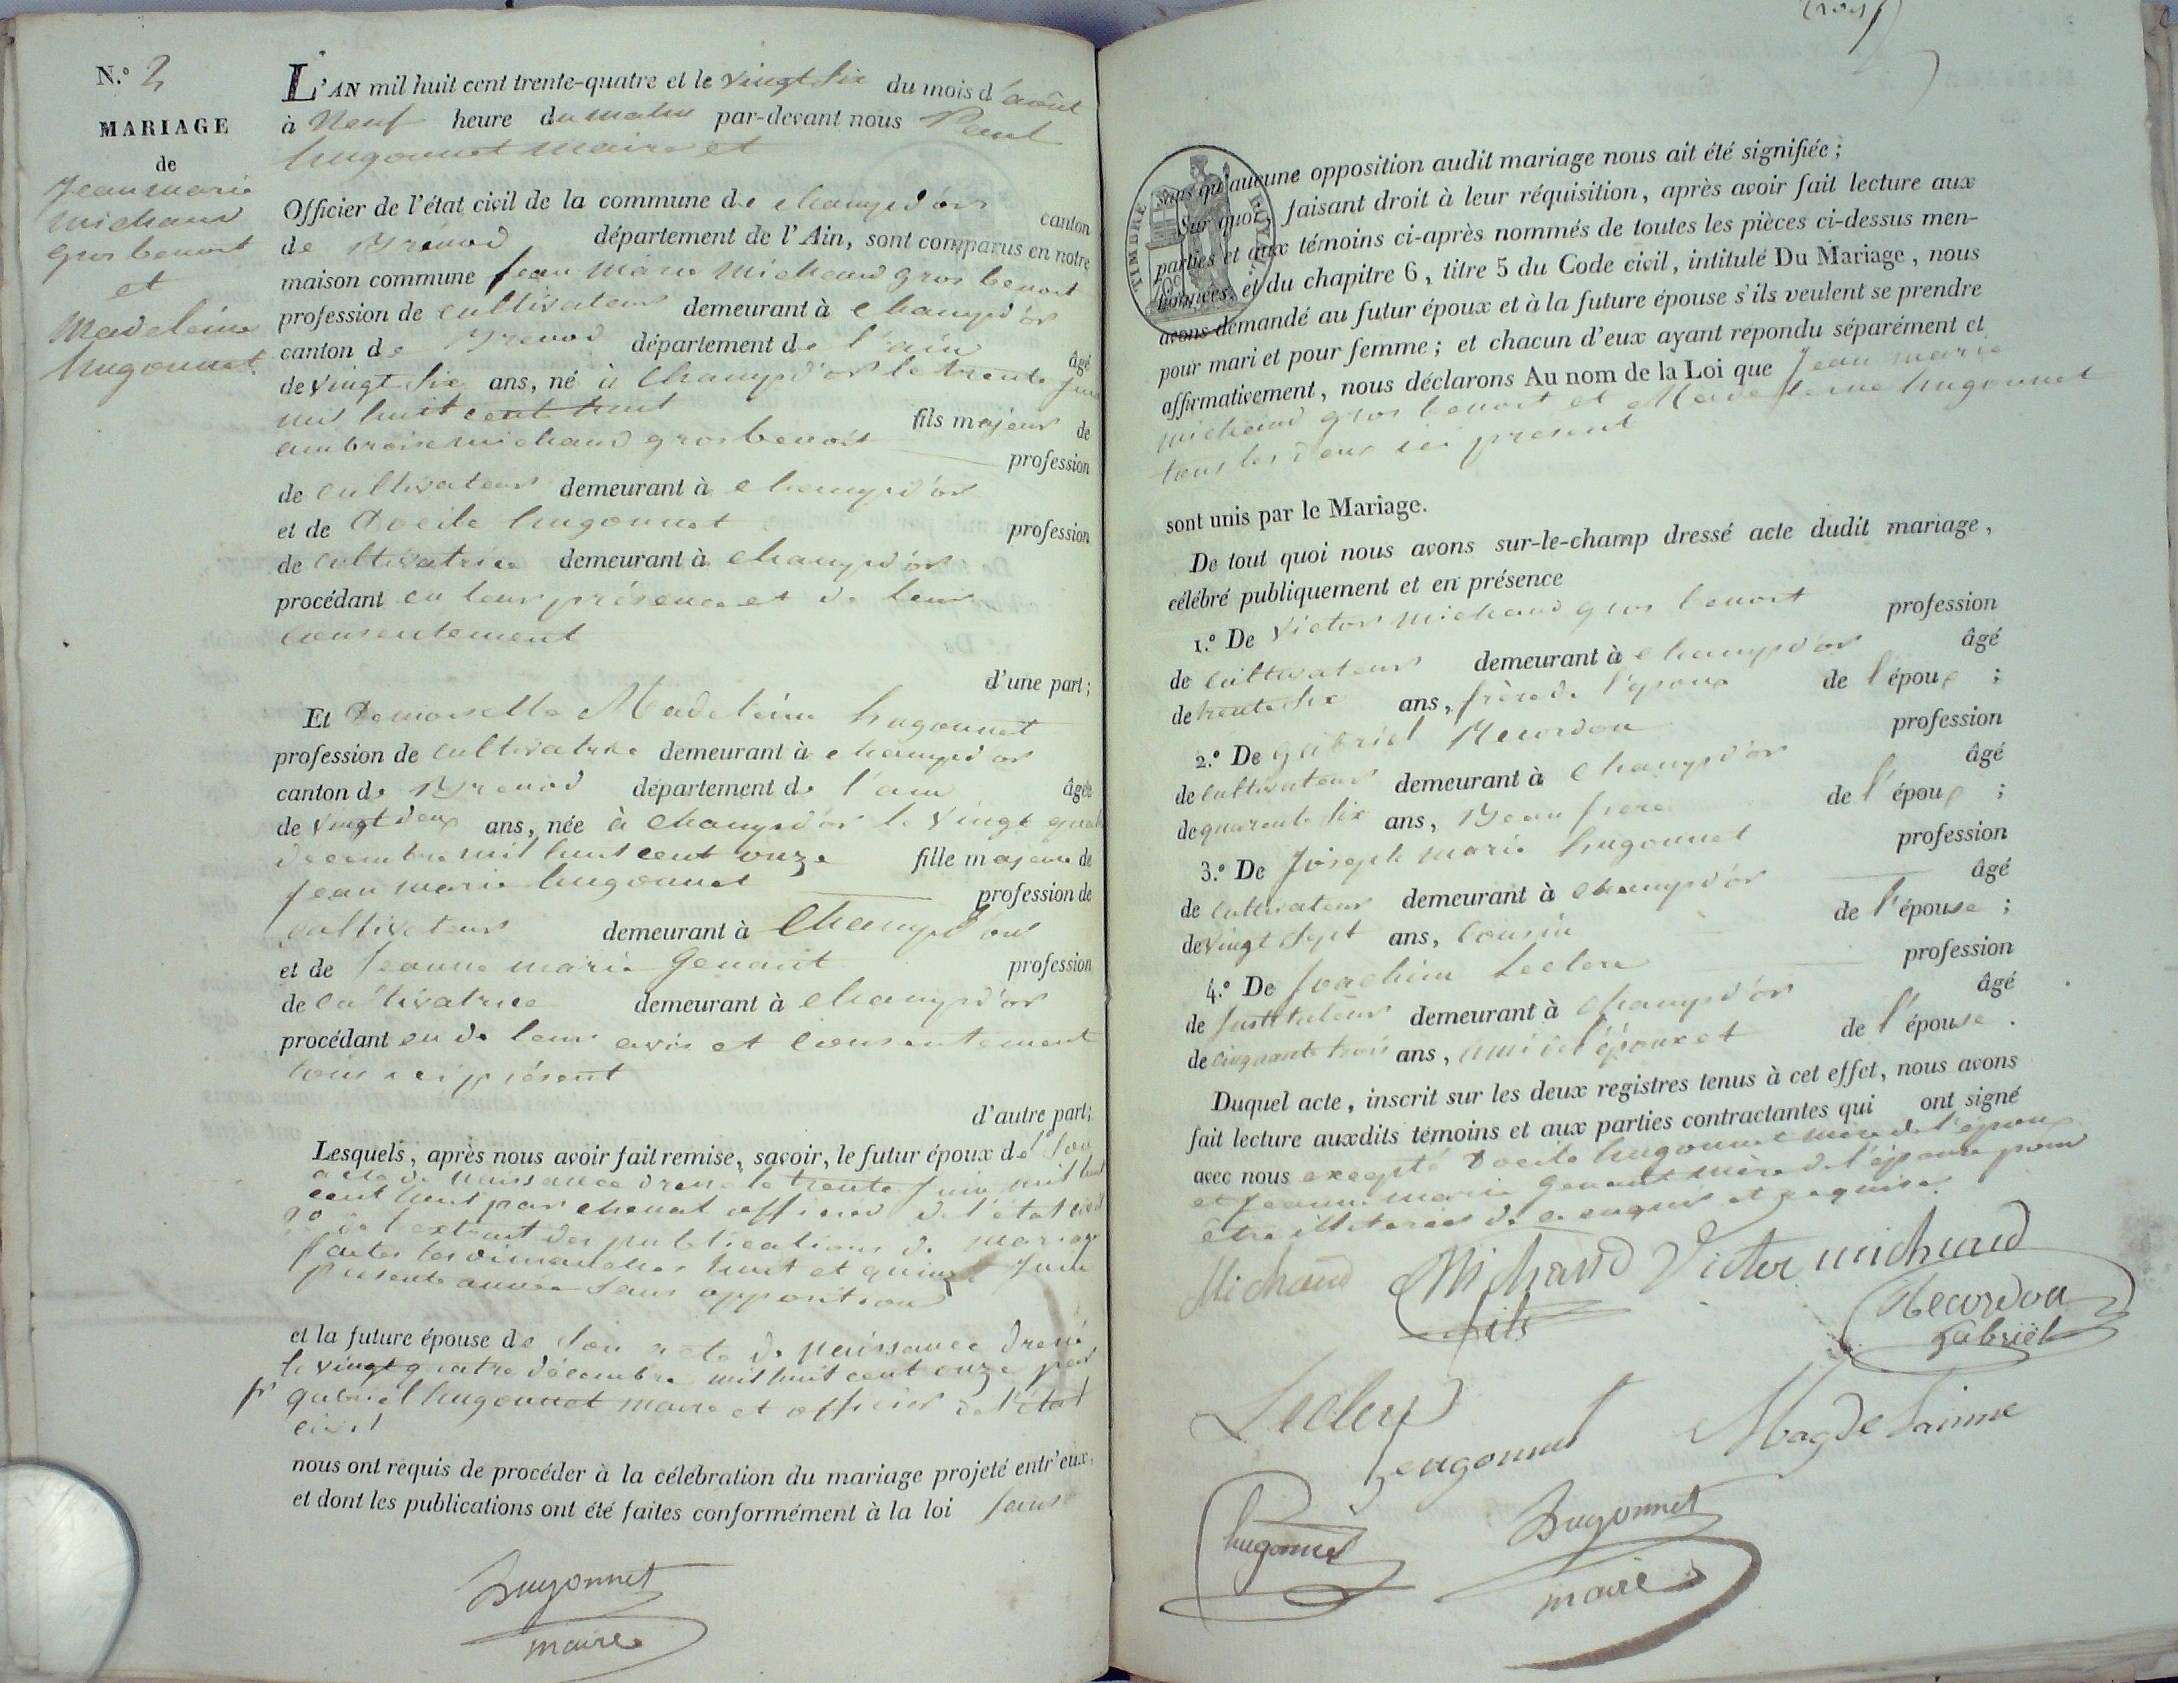 N.º 2
MARIAGE
de
Jean marie
michaud
gros benoit
et
Madeleine
hugonnet
L'AN mil huit cent trente-quatre et le vingt six du mois d'août
à Neuf heure du matin par-devant nous Paul
hugonnet maire et
Officier de l'état civil de la commune de champd'or canton
de Brénod département de l'Ain, sont comparus en notre
maison commune jean marie michaud gros benoit
profession de cultivateur demeurant à champd'or
canton de Brenod département de l'ain âgé
de vingt six ans, né à champd'or le trente juin
mil huit cent huit fils majeur de
ambroise michaud gros benoit profession
de cultivateur demeurant à champd'or
et de Docile hugonnet profession
de cultivatrice demeurant à champd'or
procédant en leur présence et de leur
consentement
d'une part;
Et Demoiselle Madeleine hugonnet
profession de cultivatrice demeurant à champd'or
canton de Brenod département de l'ain âgée
de vingt deux ans, née à champd'or le vingt quatre
decembre mil huit cent onze fille majeure de
jean marie hugonnet profession de
cultivateur demeurant à champd'or
et de jeanne marie Genant profession
de cultivatrice demeurant à champd'or
procédant en de leur avis et consentement
tous ici présent
d'autre part;
Lesquels, après nous avoir fait remise, savoir, le futur époux de son
acte de naissance dressé le trente juin mil huit
cent huit par officier de l'état civil
2º de l'extrait des publications de mariage
faites les dimanches huit et quinze juin
presente année sans opposition
et la future épouse de son acte de naissance dressé
le vingt quatre décembre mil huit cent onze par
gabriel hugonnet maire et officier de l'état
civil
nous ont requis de procéder à la célébration du mariage projeté entr'eux,
et dont les publications ont été faites conformément à la loi sans
hugonnet
maire
TIMBRE ROYAL
sans qu'aucune opposition audit mariage nous ait été signifiée;
Sur quoi, faisant droit à leur réquisition, après avoir fait lecture aux
parties et aux témoins ci-après nommés de toutes les pièces ci-dessus men-
tionnées, et du chapitre 6, titre 5 du Code civil, intitulé Du Mariage, nous
avons demandé au futur époux et à la future épouse s'ils veulent se prendre
pour mari et pour femme; et chacun d'eux ayant répondu séparément et
affirmativement, nous déclarons Au nom de la Loi que Jean marie
michaud gros benoit et Madeleine hugonnet
tous les deux ici present
sont unis par le Mariage.
De tout quoi nous avons sur-le-champ dressé acte dudit mariage,
célébré publiquement et en présence
1.º De victor michaud gros benoit profession
de cultivateur demeurant à champd'or âgé
de trente six ans, frère de l'époux de l'époux;
2.º De gabriel Recordon profession
de cultivateur demeurant à champd'or âgé
de quarente six ans, Beau frere de l'époux;
3.º De Joseph marie hugonnet profession
de cultivateur demeurant à champd'or âgé
de vingt sept ans, cousin de l'épouse;
4.º De Joachim Leclerc profession
de Instituteur demeurant à champd'or âgé
de cinquante trois ans, ami de l'époux et de l'épouse.
Duquel acte, inscrit sur les deux registres tenus à cet effet, nous avons
fait lecture auxdits témoins et aux parties contractantes qui ont signé
avec nous excepté Docile hugonnet mère de l'époux
et jeanne marie Genant mère de l'épouse pour
être illeterées de ce enquis et requise.
Michaud Michaud Victor michaud
fils
Recordon
Gabriël
Leclerc
hugonnet Magdelainne
hugonnet hugonnet
maire